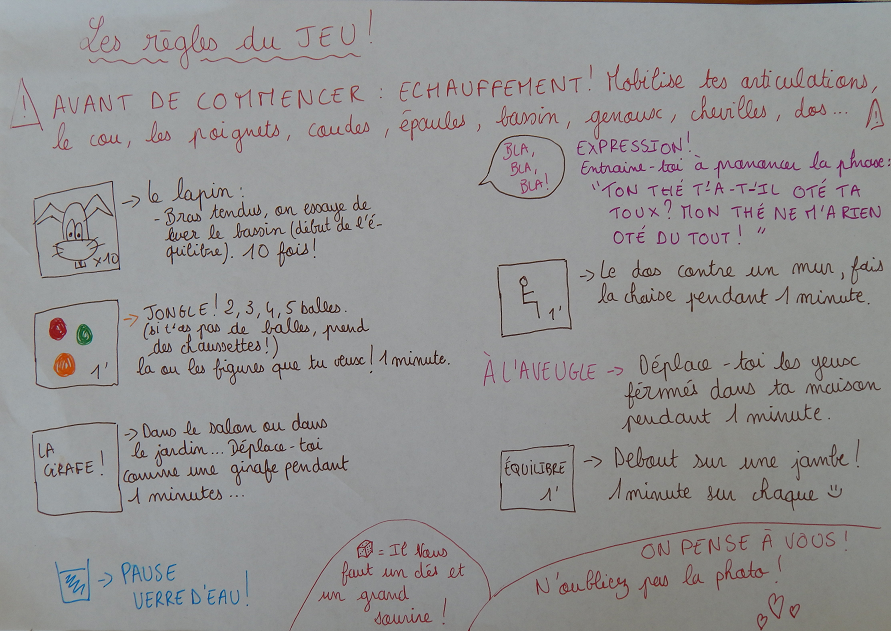 Les règles du JEU!
AVANT DE COMMENCER : ECHAUFFEMENT! Mobilise tes articulations,
le cou, les poignets, coudes, épaules, bassin, genoux, chevilles, dos...
x10
→ Le lapin :
- Bras tendus, on essaye de
lever le bassin (début de l'é-
quilibre). 10 fois!
1'
→ JONGLE! 2, 3, 4, 5 balles.
(si t'as pas de balles, prend
des chaussettes!)
la ou les figures que tu veux! 1 minute.
LA
GIRAFE!
→ Dans le salon ou dans
le jardin... Déplace-toi
comme une girafe pendant
1 minutes...
→ PAUSE
VERRE D'EAU!
BLA,
BLA,
BLA!
EXPRESSION!
Entraine-toi à prononcer la phrase:
"TON THÉ T'A-T-IL OTÉ TA
TOUX? MON THÉ NE M'A RIEN
OTÉ DU TOUT! "
1'
→ Le dos contre un mur, fais
la chaise pendant 1 minute.
À L'AVEUGLE → Déplace-toi les yeux
férmés dans ta maison
pendant 1 minute.
ÉQUILIBRE
1'
→ Debout sur une jambe!
1 minute sur chaque
= Il vous
faut un dés et
un grand
sourire!
ON PENSE À VOUS!
N'oubliez pas la photo!